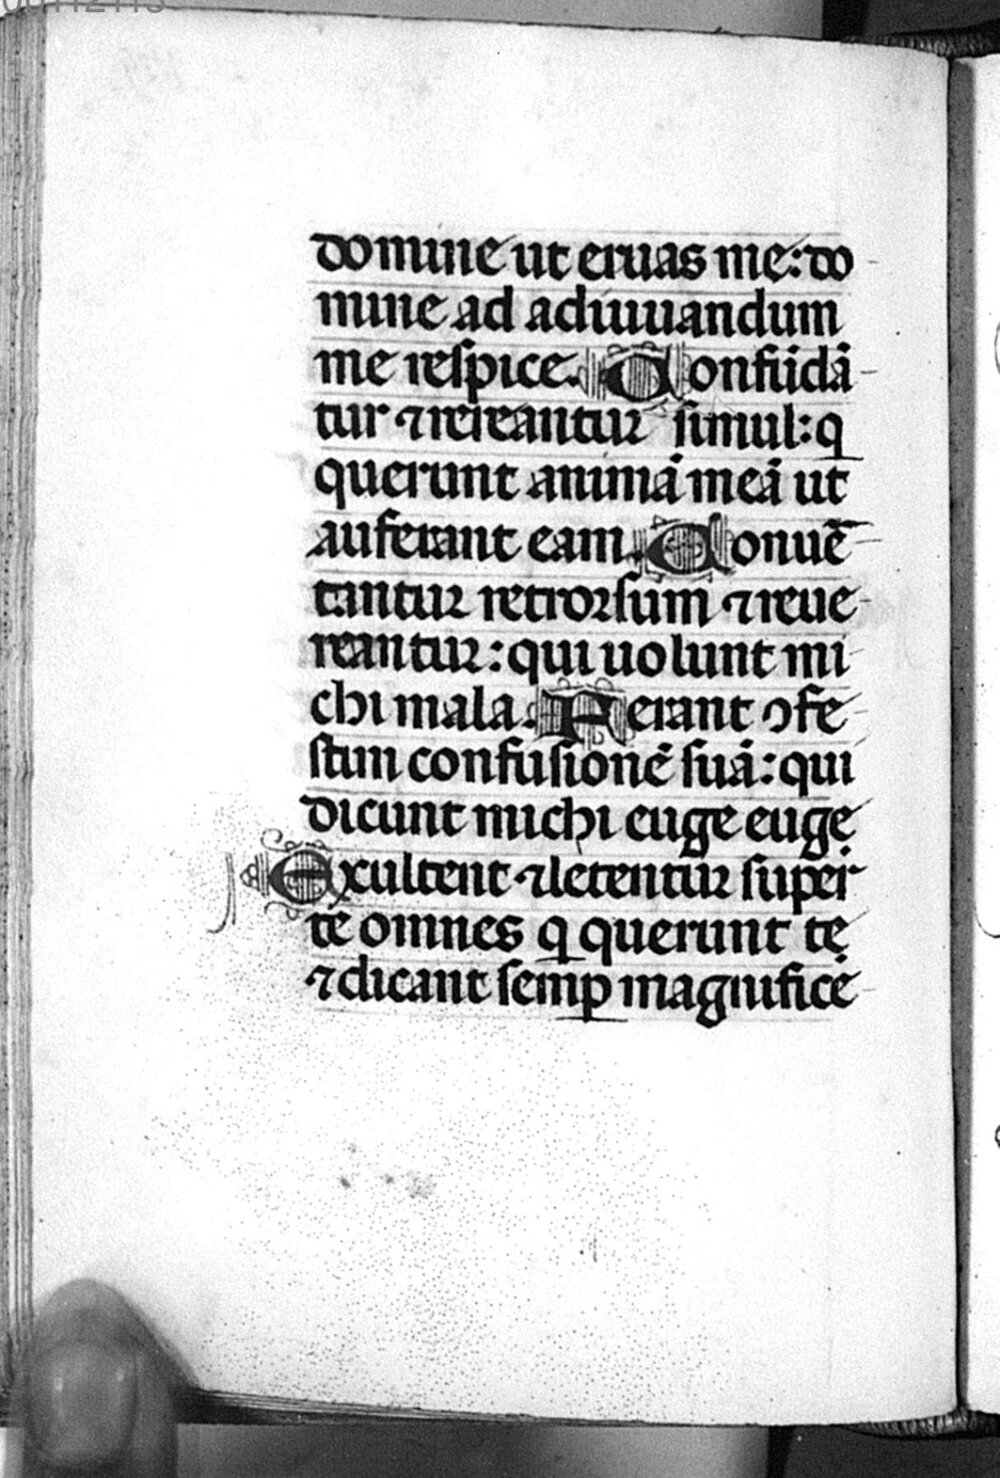 00112113
domine ut eruas me: do
mine ad adiuuandum
me respice. Confūdā
tur ⁊ reieantur simul: q
querunt animā meā ut
auferant eam. Conuē
tantur retrorsum ⁊ reue
reantur: qui uolunt mi
chi mala. Ferant ↄfe
stim confusionē suā: qui
dicunt michi euge euge
Exultent ⁊ letentur super
te omnes q querunt te
⁊ dicant semꝑ magnifice